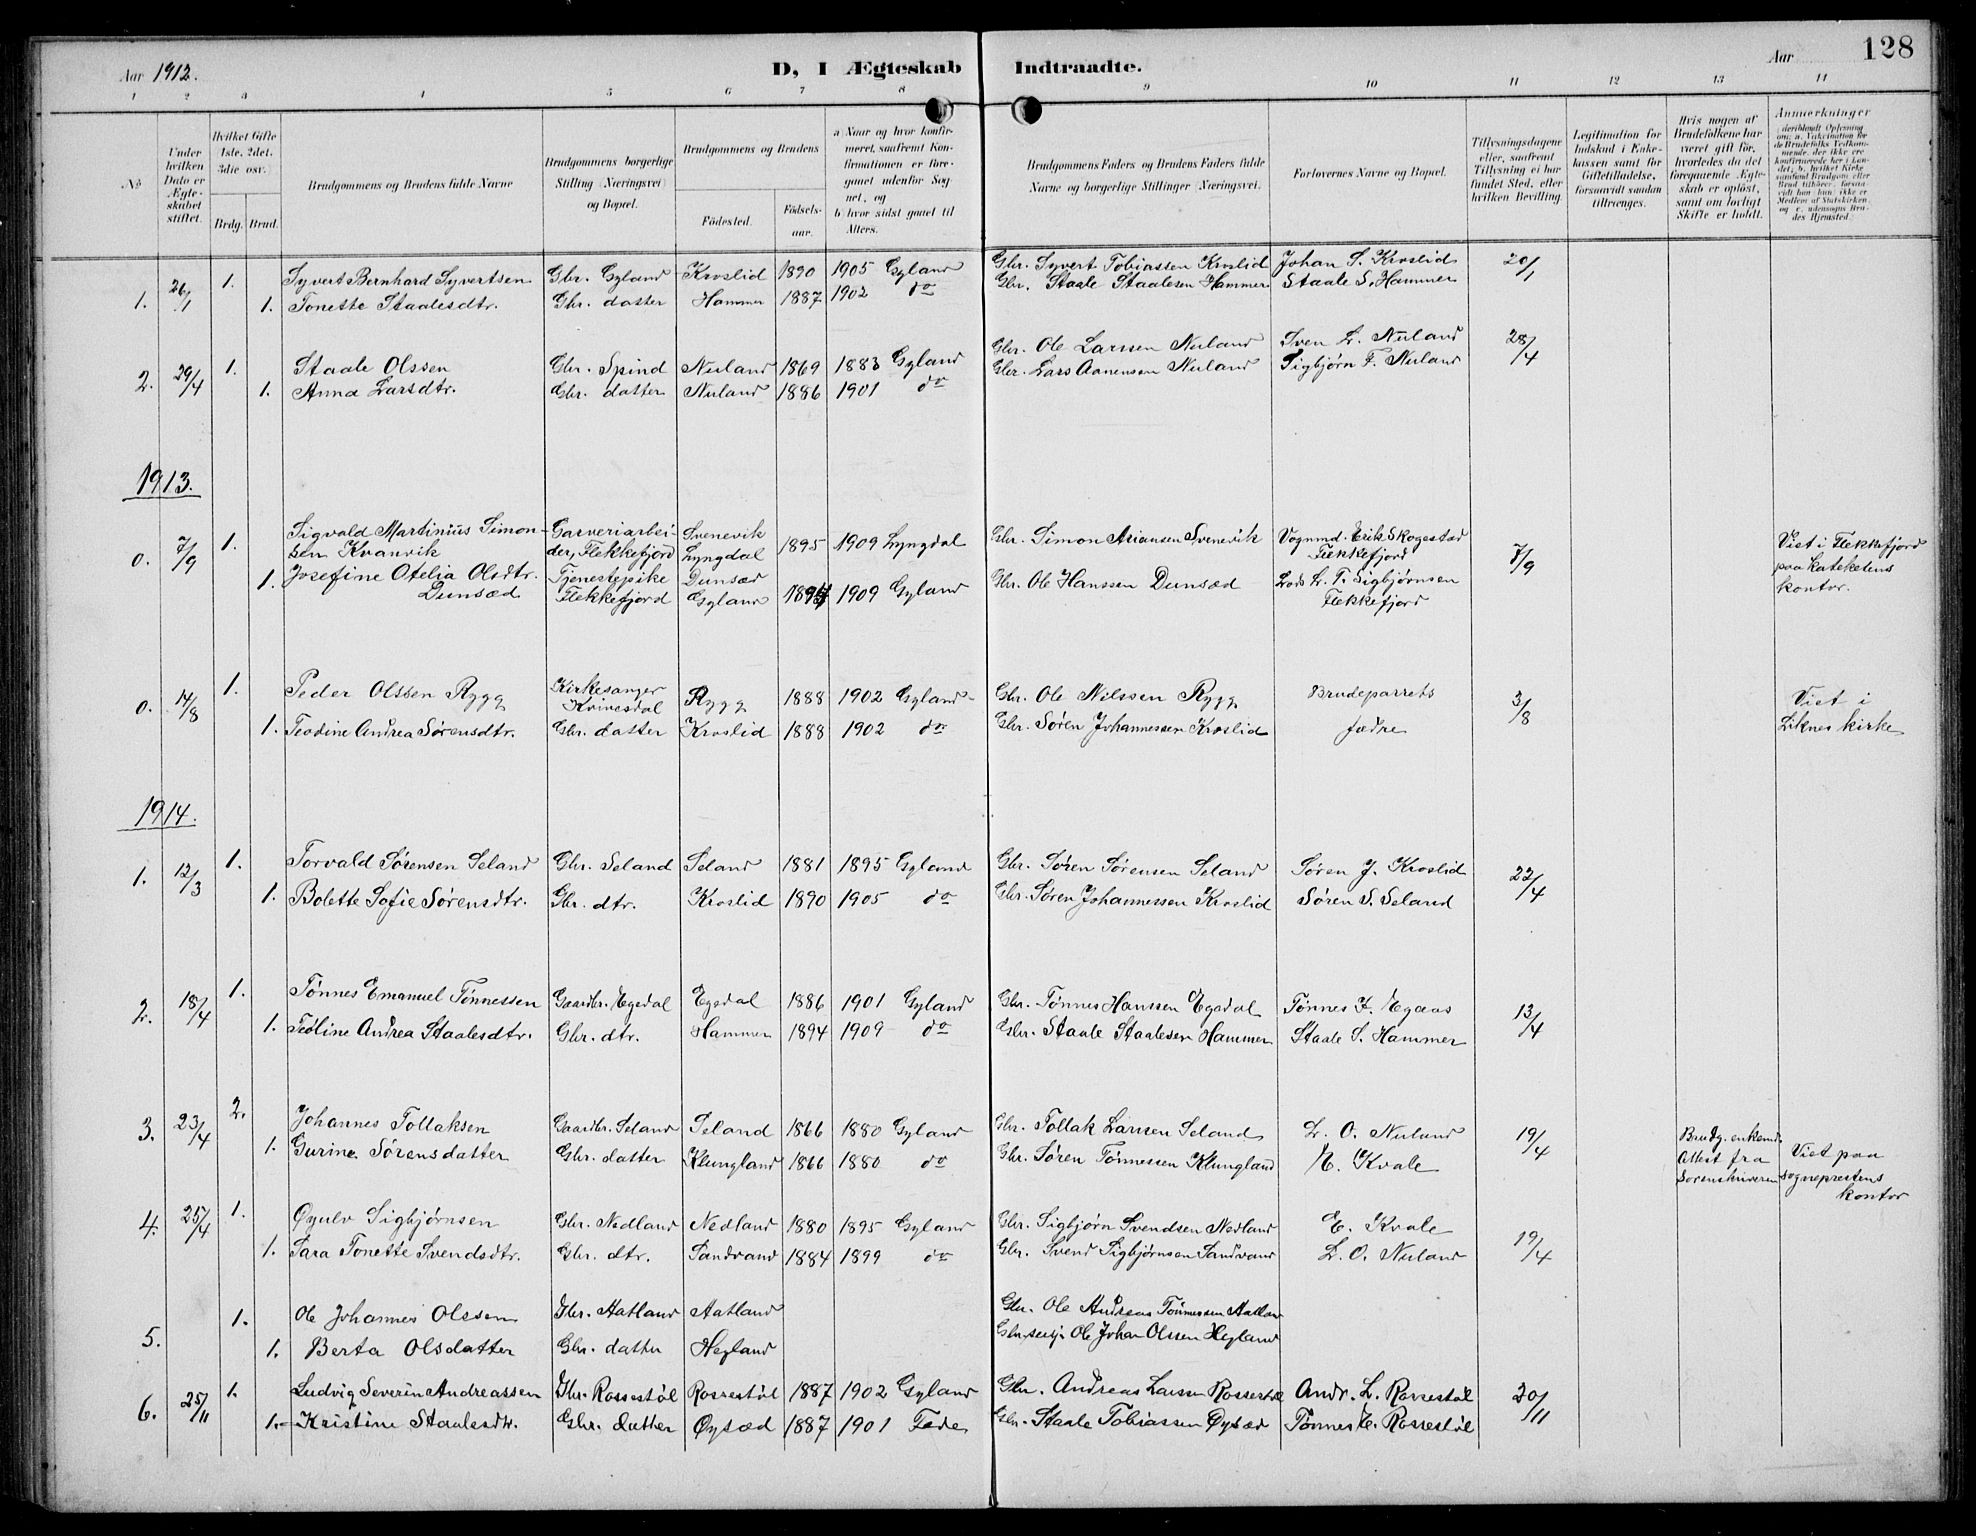 Aar 1912.
D, I Ægteskab Indtraadte.
Aar 128
1 2 3 4 5 6 7 8 9 10 11 12 13 14
No
Under hvilken Dato er Ægteskabet stiftet.
Hvilket Gifte 1ste, 2det, 3die osv.
Brdg. Brud.
Brudgommens og Brudens fulde Navne
Brudgommens borgerlige Stilling (Næringsvei) og Bopæl.
Brudgommens og Brudens
Fødested. Fødselsaar.
a) Naar og hvor konfirmeret, saafremt Konfirmationen er foregaaet udenfor Sognet, og
b) hvor sidst gaaet til Alters.
Brudgommens Faders og Brudens Faders fulde Navne og borgerlige Stillinger (Næringsvei).
Forlovernes Navne og Bopæl.
Tillysningsdagene eller, saafremt Tillysning ei har fundet Sted, efter hvilken Bevilling.
Legitimation for Indskud i Enkekassen samt for Giftetilladelse, forsaavidt saadan tiltrænges.
Hvis nogen af Brudefolkene har været gift før, hvorledes da det foregaaende Ægteskab er opløst, samt om lovligt Skifte er holdt.
Anmerkninger
1. 26/1 1. Syvert Bernhard Syvertsen Gbr. Gyland Kroslid 1890 1905 Gyland Gbr. Syvert Tobiassen Kroslid Johan S. Kroslid 20/1
1. Tonette Staalesdtr. Gbr. datter Hammer 1887 1902 do Gbr. Staale Staalesen Hammer Staale S. Hammer
2. 29/4 1. Staale Olssen Gbr. Spind Nuland 1869 1883 Gyland Gbr. Ole Larssen Nuland Sven L. Nuland 28/4
1. Anna Larsdtr. Gbr. datter Nuland 1886 1901 do Gbr. Lars Aanensen Nuland Sigbjørn F. Nuland
1913.
0. 7/9 1. Sigvald Martinius Simonsen Kvanvik Garveriarbeider, Flekkefjord Svenevik Lyngdal 1895 1909 Lyngdal Gbr. Simon Asiansen Svenevik Vognmd. Erik Skogestad Flekkefjord 7/9 Viet i Flekkefjord paa kateketens kontor.
1. Josefine Otelia Olsdtr. Dunsæd Tjenestepike Flekkefjord Dunsæd Gyland 1894 1909 Gyland Gbr. Ole Hanssen Dunsæd Lods L. T. Sigbjørnsen Flekkefjord
0. 14/8 1. Peder Olssen Rygg Kirkesanger Kvinesdal Rygg 1888 1902 Gyland Gbr. Ole Nilssen Rygg Brudeparrets 3/8 Viet i
1. Teodine Andrea Sørensdtr. Gbr. datter Kroslid 1888 1902 do Gbr. Søren Johannessen Kroslid fædre Liknes kirke
1914.
1. 12/3 1. Torvald Sørensen Seland Gbr. Seland Seland 1881 1895 Gyland Gbr. Søren Sørensen Seland Søren J. Kroslid 22/4
1. Bolette Sofie Sørensdtr. Gbr. dtr. Kroslid 1890 1905 do Gbr. Søren Johannessen Kroslid Søren S. Seland
2. 18/4 1. Tønnes Emanuel Tønnessen Gaardbr. Egedal Egedal 1886 1901 Gyland Gbr. Tønnes Hanssen Egedal Tønnes F. Egeaas 13/4
1. Teoline Andrea Staalesdtr. Gbr. dtr. Hammer 1894 1909 do Gbr. Staale Staalesen Hammer Staale S. Hammer
3. 23/4 2. Johannes Tollaksen Gaardbr. Seland Seland 1866 1880 Gyland Gbr. Tollak Larssen Seland L. O. Nuland 19/4 Brudg. enkemd. Attest fra Sorenskriveren Viet paa sogneprestens kontor
1. Gurine Sørensdatter Gbr. datter Klungland 1866 1880 do Gbr. Søren Tønnessen Klungland E. Kvale
4. 25/4 1. Øyulv Sigbjørnsen Gbr. Nedland Nedland 1880 1895 Gyland Gbr. Sigbjørn Svendsen Nedland E. Kvale 19/4
1. Sara Tonette Svendsdtr. Gbr. dtr. Sandvand 1884 1899 do Gbr. Svend Sigbjørnsen Sandvand L. O. Nuland
5. 1. Ole Johannes Olssen Gbr. Aatland Aatland Gbr. Ole Andreas Tønnessen Aatland
1. Berta Olsdatter Gbr. datter Hegland Ole Johan Olssen Hegland
6. 25/11 1. Ludvig Severin Andreassen Gbr. Rossestøl Rossestøl 1887 1902 Gyland Gbr. Andreas Larsen Rossestøl Andr. L. Rossestøl 20/11
1. Kristine Staalesdtr. Gbr. datter Øysæd 1887 1901 Fede Gbr. Staale Tobiassen Øysæd Tønnes E. Rossestøl